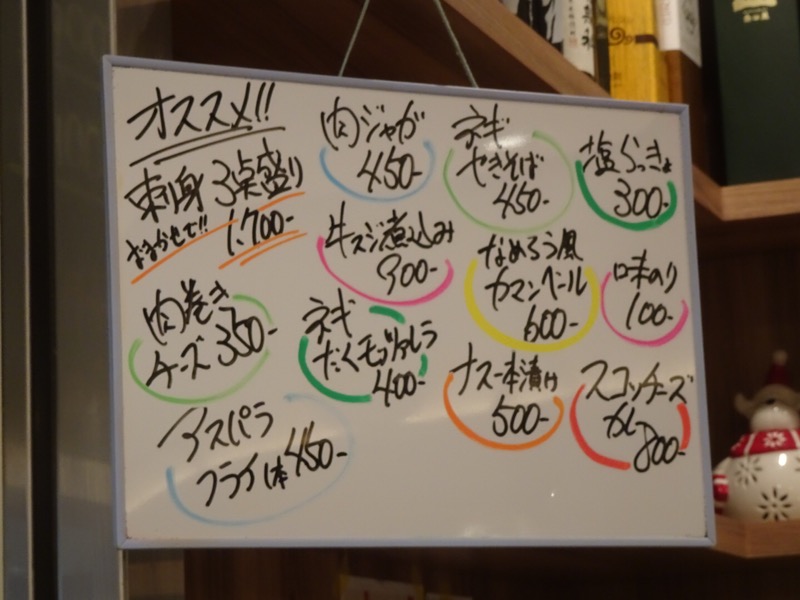 オススメ!!
刺身3点盛り
おまかせで!!
1.700-
肉巻き
チーズ 350-
アスパラ
フライ1本 450-
肉ジャガ
450-
牛スジ煮込み
900-
ネギ
たくモッツァレラ
400-
ネギ
やきそば
450-
なめろう風
カマンベール
600-
ナス一本漬け
500-
塩らっきょ
300-
味のり
100-
スコッチーズ
800-